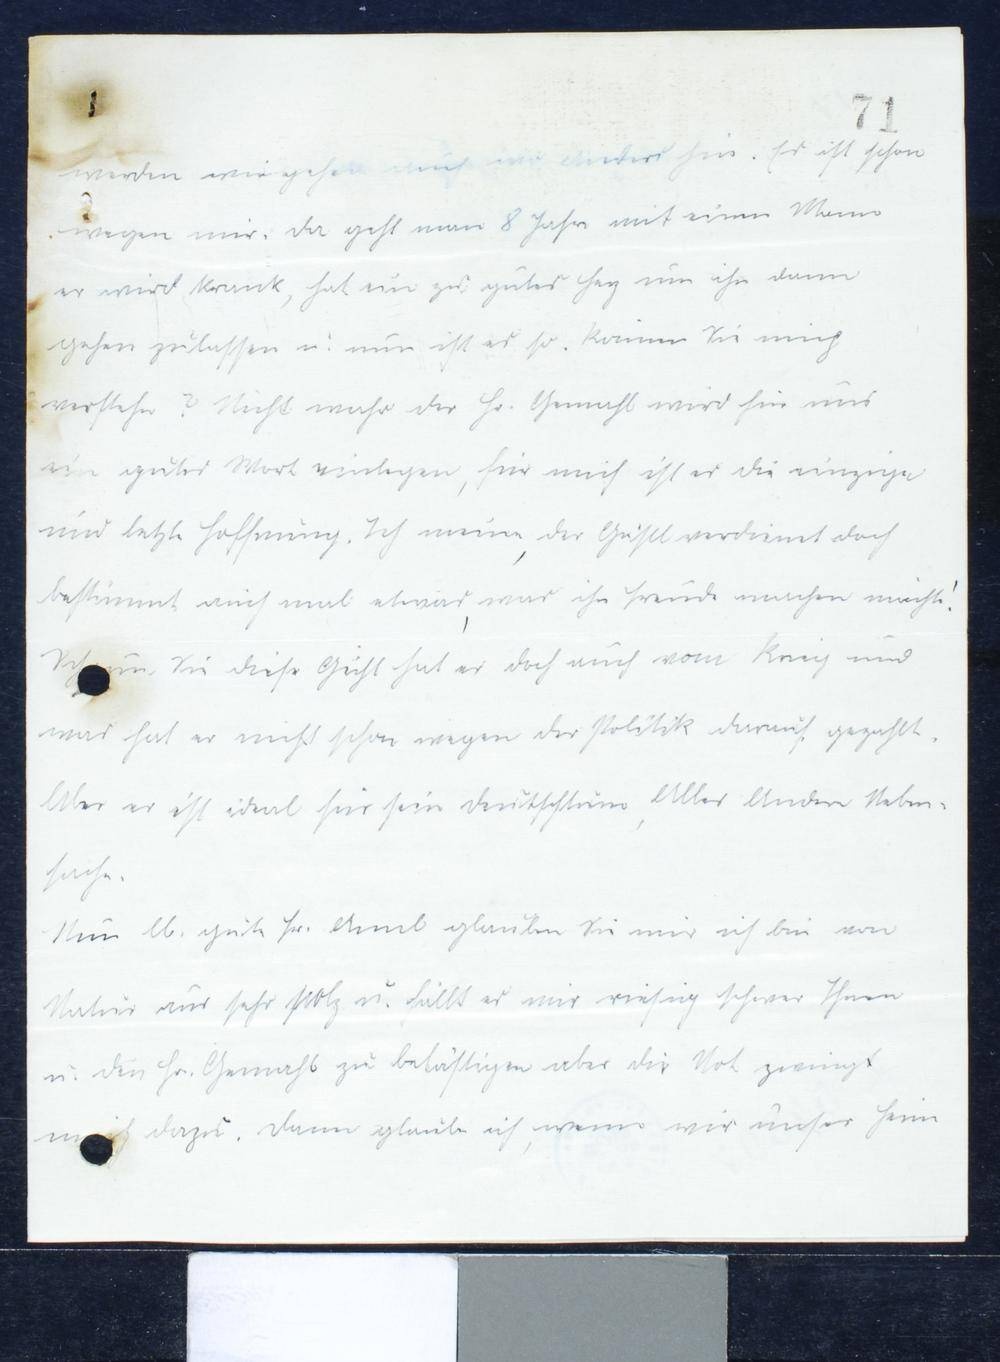 71
werden wir gehen auch wo anders hin. Es ist schon
wegen mir. Da geht man 8 Jahre mit einem Mann
er wird krank, hat ein zu gutes Herz um ihn dann
gehen zulassen u. nun ist es so. Können Sie mich
verstehn? Nicht wahr der Hr. Gemahl wird für uns
ein gutes Wort einlegen, für mich ist er die einzige
und letzte Hoffnung. Ich meine, der Gustl verdienet doch
bestimmt auch mal etwas, was ihm Freude machen möchte!
Schaun Sie diese Gicht hat er doch auch vom Krieg und
was hat er nicht schon wegen der Politik darauf gezahlt.
Aber er ist ideal für sein Deutschtum, Alles Andere Neben-
sache.
Nun lb. gute Fr. glauben Sie mir ich bin von
Natur aus sehr stolz u. fällt es mir riesig schwer Ihnen
u. den Hr. Gemahl zu belästigen aber die Not zwingt
mich dazu. Dann glaube ich, wenn wir unser Heim